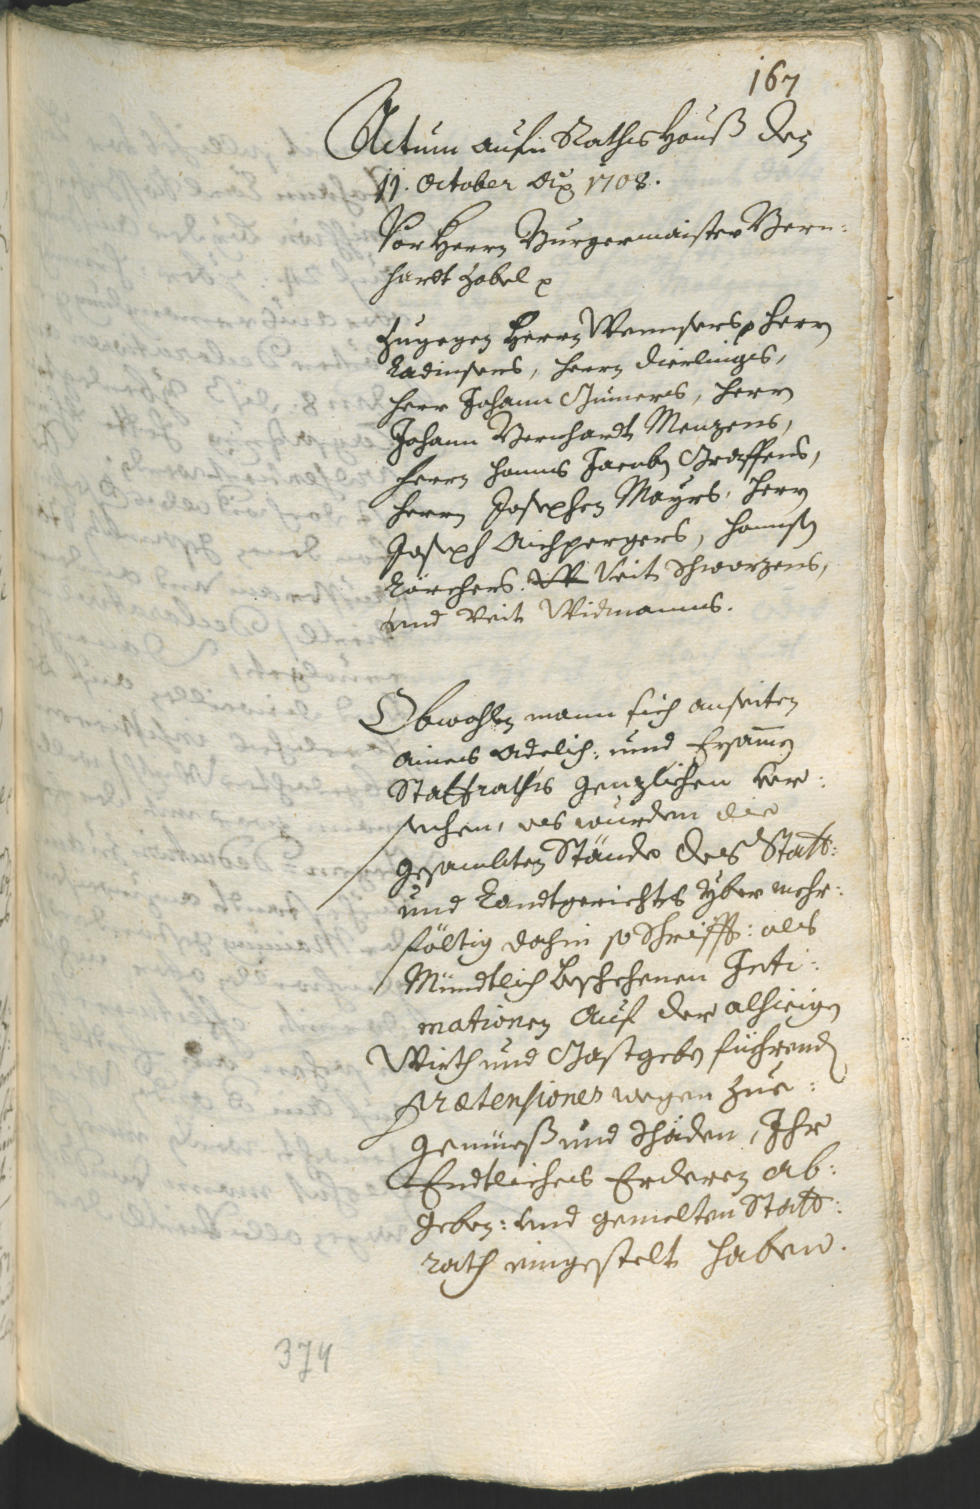 167
Actum aufm Rathshauß den
11. October Ao 1708.
Vor Herrn Burgermaister Bern:
hardt Zobel p
Zugegen Herrn Wennsers p Herrn
Ladinsers, Herrn Dierlings,
Herr Johann Gumers, Herrn
Johann Bernhardt Menzens,
Herrn Hanns Jacoben Graffens,
Herrn Josephen Mayrs, Herrn
Joseph Aichpergers, Hannsen
Lörchers. Veit Schwarzens,
und Veit Widmanns.
Obwohlen mann sich an seiten
aines Adelich: und Ersamen
Stattraths genzlichen ver:
sechen, es wurden die
gesambten Stände des Statt:
und Landtgerichts yber mehr:
fältig dahin so Schrifft: als
Mündtlich beschehenen Inti:
mationen auf der alhieigen
Würth und Gastgeben füehrendt
prætensiones wegen Zue:
gemüeß und Schäden, Ihr
Endtliches Erderen ab:
geben: und gemelten Statt:
rath eingestelt haben.
374